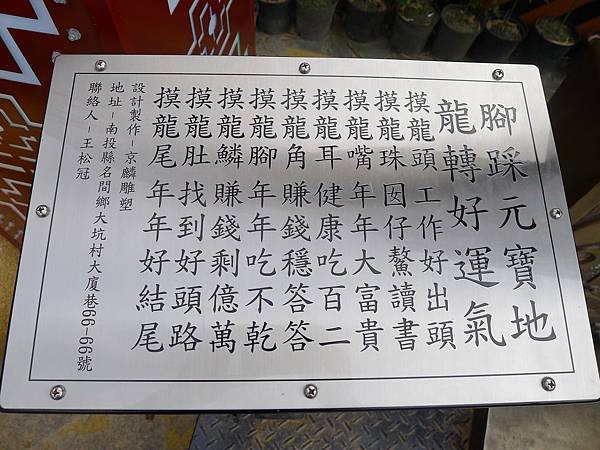 腳踩元寶地
龍轉好運氣
摸龍頭 工作好出頭
摸龍珠 囡仔鰲讀書
摸龍嘴 年年大富貴
摸龍耳 健康吃百二
摸龍角 賺錢穩答答
摸龍腳 年年吃不乾
摸龍鱗 賺錢剩億萬
摸龍肚 找到好頭路
摸龍尾 年年好結尾
設計製作-京麟雕塑
地址-南投縣名間鄉大坑村大廈巷66-99號
聯絡人-王松冠